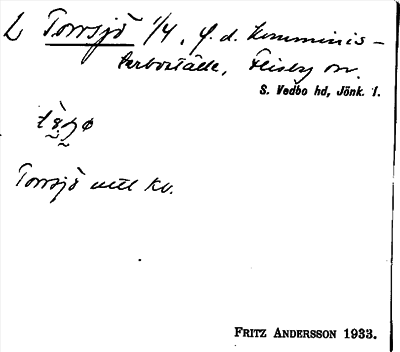 L Torrsjö 1/4, f. d. komminis-
terboställe, Flisby sn.
S. Vedbo hd, Jönk. l.
Torrsjö vid kv.
FRITZ ANDERSSON 1933.